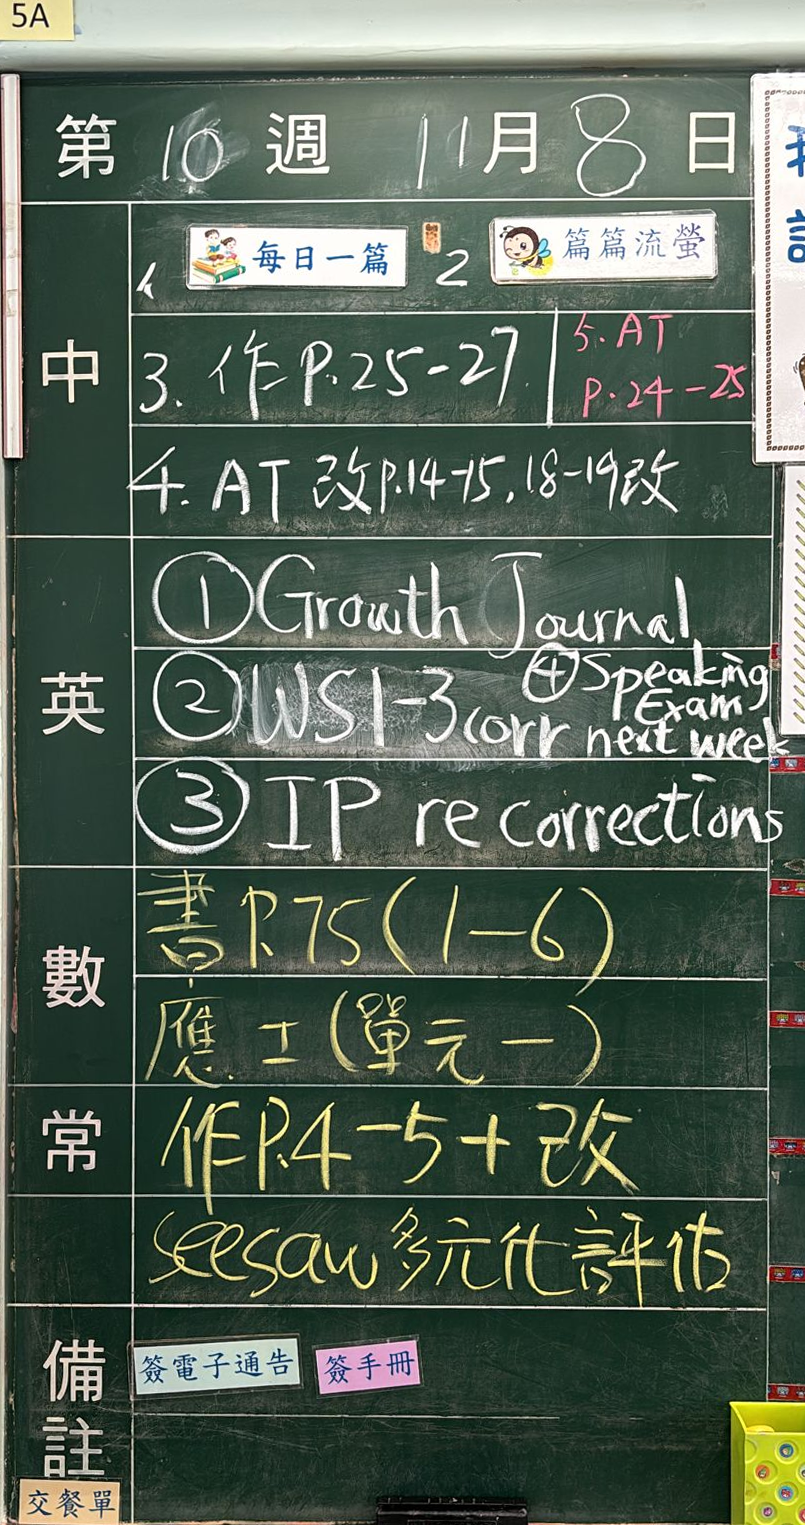 5A
第 10 週 11月 8 日
中
1. 每日一篇 2 篇篇流螢
3. 作 P.25-27
5. AT
P.24-25
4. AT 改 P.14-15, 18-19改
英
① Growth Journal
② WS1-3 corr
④ Speaking
Exam
next week
③ IP re corrections
數
書 P.75 (1-6)
應工 (單元一)
常
作P.4-5+改
seesaw 多元化評估
備註
簽電子通告 簽手冊
交餐單